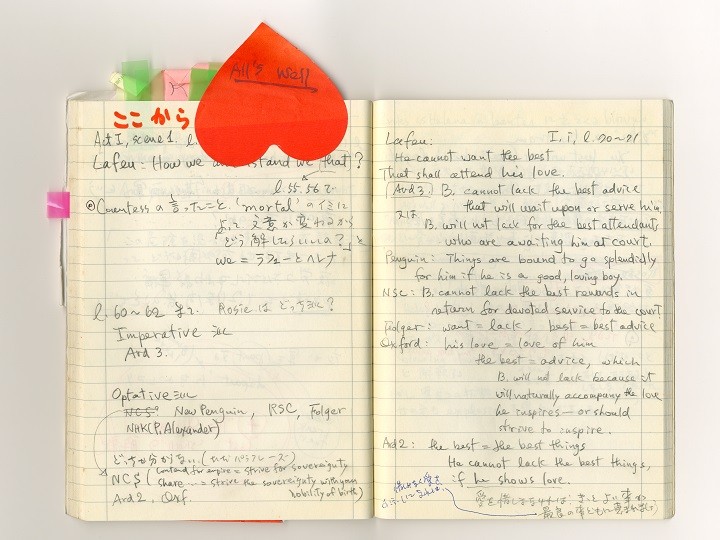 All's Well
ここから
Act I, scene 1. l.
Lafeu: How we understand we that?
l.55.56で
◎Countessの言ったこと、'mortal'のイミに
よって文意が変わるから
「どう解したらいいの?」と
we = ラフューとヘレナ
l. 60~62 まで. Rosieはどっちヨミ?
Imperative ヨミ
Ard 3.
Optative ヨミ
NCS? New Penguin, RSC, Folger
NHK(P. Alexander)
どっちか分からない. (パラフレーズ)
NCS (contend for empire = strive for sovereignty
share ... = strive the sovereignty with your
nobility of birth)
Ard 2, Oxf.
Lafeu: I. i, l. 70~71
He cannot want the best
That shall attend his love.
(Ard 3.) B. cannot lack the best advice
that will wait upon or serve him.
又は
B. will not lack for the best attendants
who are awaiting him at court.
Penguin: Things are bound to go splendidly
for him if he is a good, loving boy.
NSC: B. cannot lack the best rewards in
return for devoted service to the court.
Folger: want = lack, best = best advice
Oxford: his love = love of him
the best = advice, which
B. will not lack because it
will naturally accompany the love
he inspires — or should
strive to inspire.
Ard 2: the best = the best things
He cannot lack the best things,
if he shows love.
惜しみなく愛を
愛を惜しまなければ、きっとより
最高の